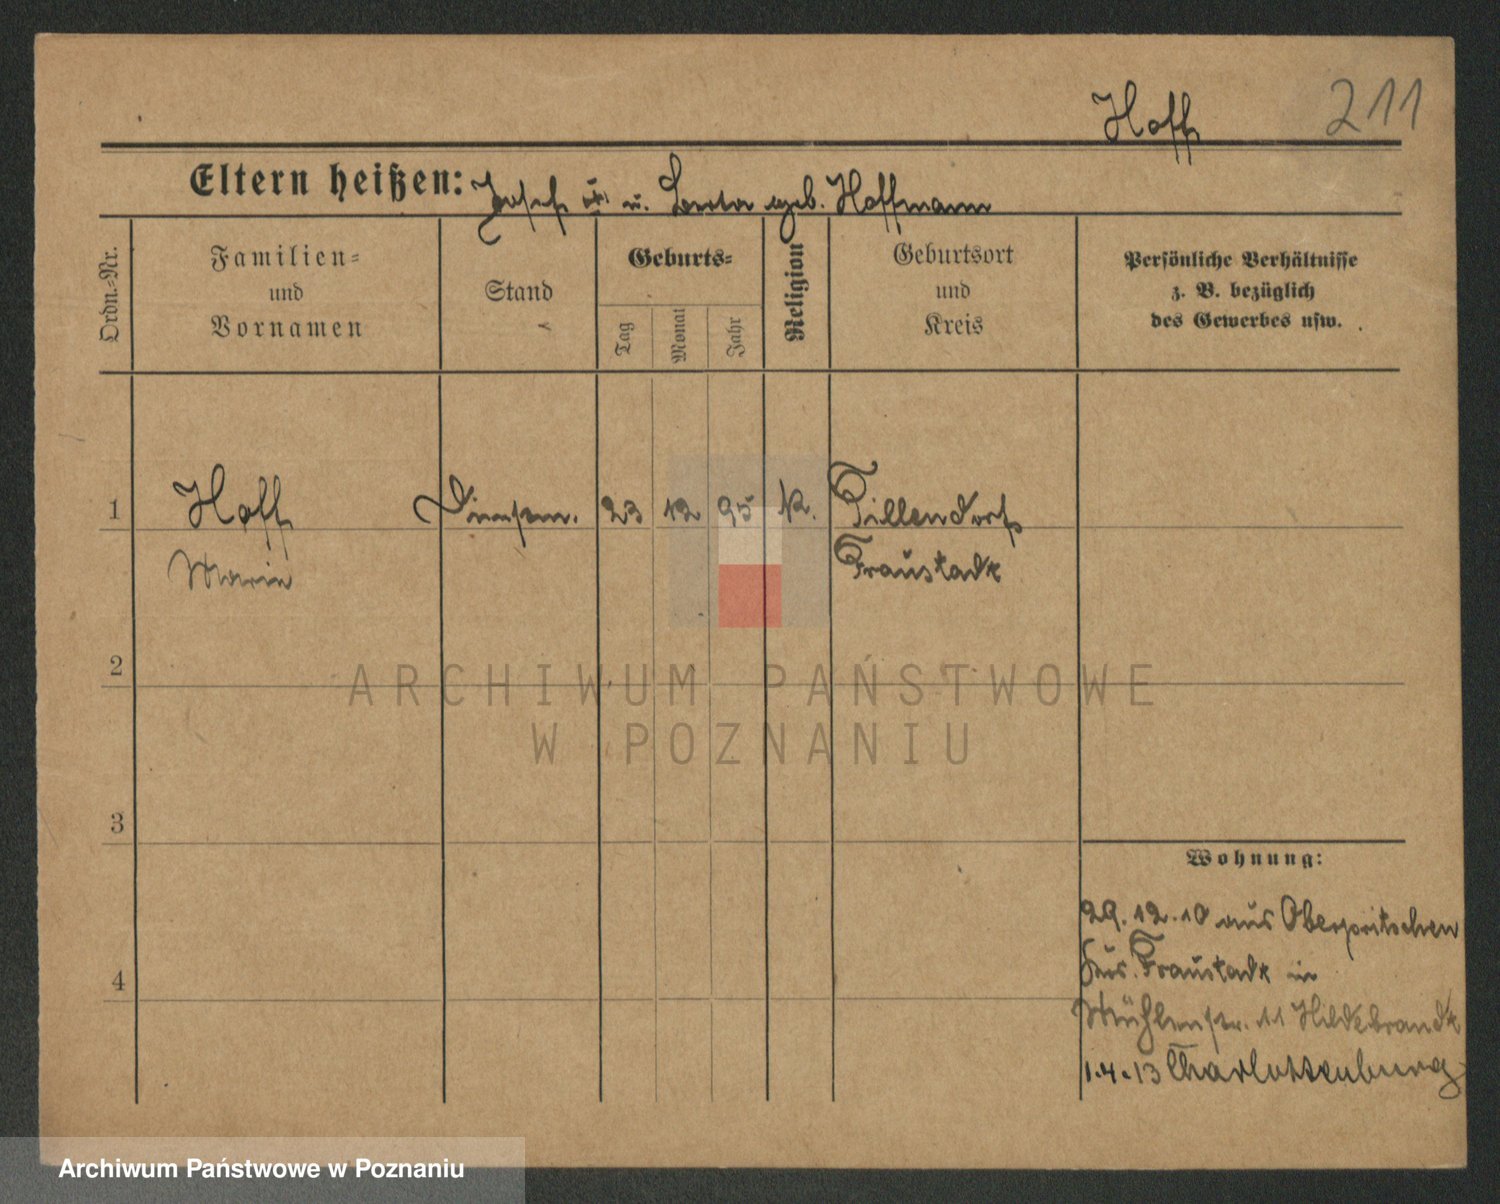 Hoff 211
Eltern heißen: Josef u. geb. Hoffmann
Ordn.-Nr.
Familien-
und
Vornamen
Stand
Geburts-
Tag
Monat
Jahr
Religion
Geburtsort
und
Kreis
Persönliche Verhältnisse
z. B. bezüglich
des Gewerbes usw.
1 Hoff Dienstm. 23 12 95 K. Tillendorf
Marie Fraustadt
2
ARCHIWUM PAŃSTWOWE
W POZNANIU
3
Wohnung:
29.12.10 aus Oberpritschen
Fraustadt in
4
Mühlenstr. 11 Hildebrandt
1.4.13 Charlottenburg
Archiwum Państwowe w Poznaniu